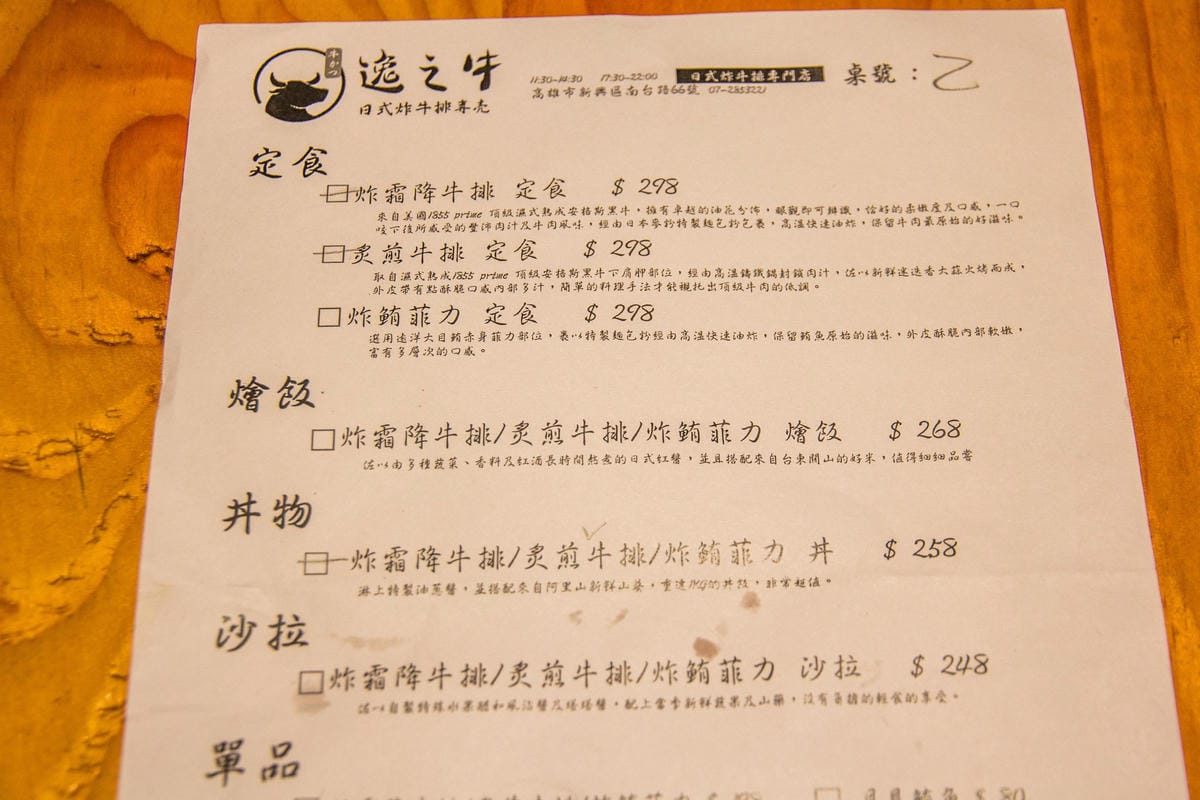 牛かつ
逸之牛
日式炸牛排專売
11:30-14:30 17:30-22:00 日式炸牛排專門店
高雄市新興區南台路66號 07-2853221
桌號：乙
定食
炸霜降牛排 定食 $ 298
來自美國1855 prime 頂級濕式熟成安格斯黑牛，擁有卓越的油花分佈，眼觀即可辨識，恰好的柔嫩度及口感，一口
咬下後所感受的豐沛肉汁及牛肉風味，經由日本麥粉特製麵包粉包裹，高溫快速油炸，保留牛肉最原始的好滋味。
炙煎牛排 定食 $ 298
取自濕式熟成1855 prime 頂級安格斯黑牛下肩胛部位，經由高溫鑄鐵鍋封鎖肉汁，佐以新鮮迷迭香大蒜火烤而成，
外皮帶有點酥脆口感內部多汁，簡單的料理手法才能襯托出頂級牛肉的低調。
炸鮪菲力 定食 $ 298
選用遠洋大目鮪赤身菲力部位，裹以特製麵包粉經由高溫快速油炸，保留鮪魚原始的滋味，外皮酥脆內部軟嫩，
富有多層次的口感。
燴飯
炸霜降牛排/炙煎牛排/炸鮪菲力 燴飯 $ 268
佐以由多種蔬菜、香料及紅酒長時間熬煮的日式紅醬，並且搭配來自台東關山的好米，值得細細品嘗
丼物
炸霜降牛排/炙煎牛排/炸鮪菲力 丼 $ 258
淋上特製油蔥醬，並搭配來自阿里山新鮮山葵。重達1KG的丼飯，非常超值。
沙拉
炸霜降牛排/炙煎牛排/炸鮪菲力 沙拉 $ 248
佐以自製特殊水果醋和風沾醬及塔塔醬，配上當季新鮮蔬果及山藥，沒有負擔的輕食的享受。
單品
$ 80